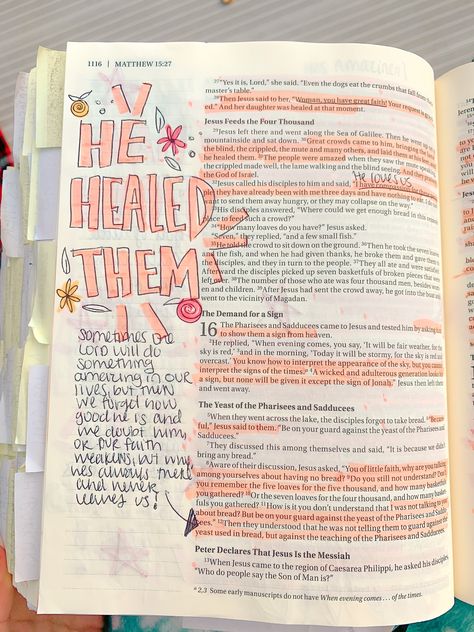 1116 | MATTHEW 15:27
HE
HEALED
THEM!
Sometimes the
LORD will do
something
amazing in our
lives, but then
we forget how
good he is and
we doubt him
or our faith
weakens, but why
he's always there
and never
leaves us!
27“Yes it is, Lord,” she said. “Even the dogs eat the crumbs that fall from their
master’s table.”
28Then Jesus said to her, “Woman, you have great faith! Your request is
ed.” And her daughter was healed at that moment.
Jesus Feeds the Four Thousand
29Jesus left there and went along the Sea of Galilee. Then he went up
mountainside and sat down. 30Great crowds came to him, bringing the
the blind, the crippled, the mute and many others, and laid them at his feet;
he healed them. 31The people were amazed when they saw the mute speaking,
the crippled made well, the lame walking and the blind seeing. And they
the God of Israel.
He loves us
32Jesus called his disciples to him and said, “I have compassion for these
ple; they have already been with me three days and have nothing to eat. I do
want to send them away hungry, or they may collapse on the way.”
33His disciples answered, “Where could we get enough bread in this remote
place to feed such a crowd?”
34“How many loaves do you have?” Jesus asked.
“Seven,” they replied, “and a few small fish.”
35He told the crowd to sit down on the ground. 36Then he took the seven loaves
and the fish, and when he had given thanks, he broke them and gave them
the disciples, and they in turn to the people. 37They all ate and were satisfied.
Afterward the disciples picked up seven basketfuls of broken pieces that were
left over. 38The number of those who ate was four thousand men, besides women
and children. 39After Jesus had sent the crowd away, he got into the boat and
went to the vicinity of Magadan.
The Demand for a Sign
16 The Pharisees and Sadducees came to Jesus and tested him by asking him
to show them a sign from heaven.
2He replied, “When evening comes, you say, ‘It will be fair weather, for the
sky is red,’ 3and in the morning, ‘Today it will be stormy, for the sky is red and
overcast.’ You know how to interpret the appearance of the sky, but you cannot
interpret the signs of the times.a 4A wicked and adulterous generation looks for
a sign, but none will be given it except the sign of Jonah.” Jesus then left them
and went away.
The Yeast of the Pharisees and Sadducees
5When they went across the lake, the disciples forgot to take bread. 6“Be care-
ful,” Jesus said to them. “Be on your guard against the yeast of the Pharisees and
Sadducees.”
7They discussed this among themselves and said, “It is because we didn’t
bring any bread.”
8Aware of their discussion, Jesus asked, “You of little faith, why are you talking
among yourselves about having no bread? 9Do you still not understand? Don’t
you remember the five loaves for the five thousand, and how many basketfuls
you gathered? 10Or the seven loaves for the four thousand, and how many basket-
fuls you gathered? 11How is it you don’t understand that I was not talking to you
about bread? But be on your guard against the yeast of the Pharisees and Saddu-
cees.” 12Then they understood that he was not telling them to guard against the
yeast used in bread, but against the teaching of the Pharisees and Sadducees.
Peter Declares That Jesus Is the Messiah
13When Jesus came to the region of Caesarea Philippi, he asked his disciples,
“Who do people say the Son of Man is?”
a 2,3 Some early manuscripts do not have When evening comes . . . of the times.